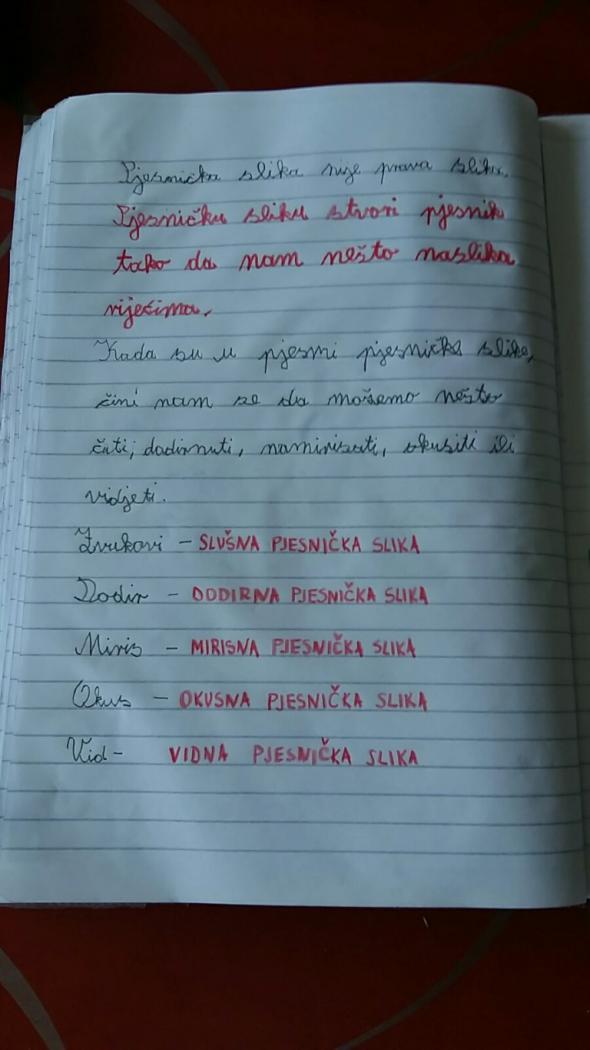 Pjesnička slika nije prava slika.
Pjesničku sliku stvori pjesnik
tako da nam nešto naslika
riječima.
Kada su u pjesmi pjesničke slike,
čini nam se da možemo nešto
čuti, dodirnuti, namirisati, okusiti ili
vidjeti.
Zvukovi - SLUŠNA PJESNIČKA SLIKA
Dodir - DODIRNA PJESNIČKA SLIKA
Miris - MIRISNA PJESNIČKA SLIKA
Okus - OKUSNA PJESNIČKA SLIKA
Vid - VIDNA PJESNIČKA SLIKA